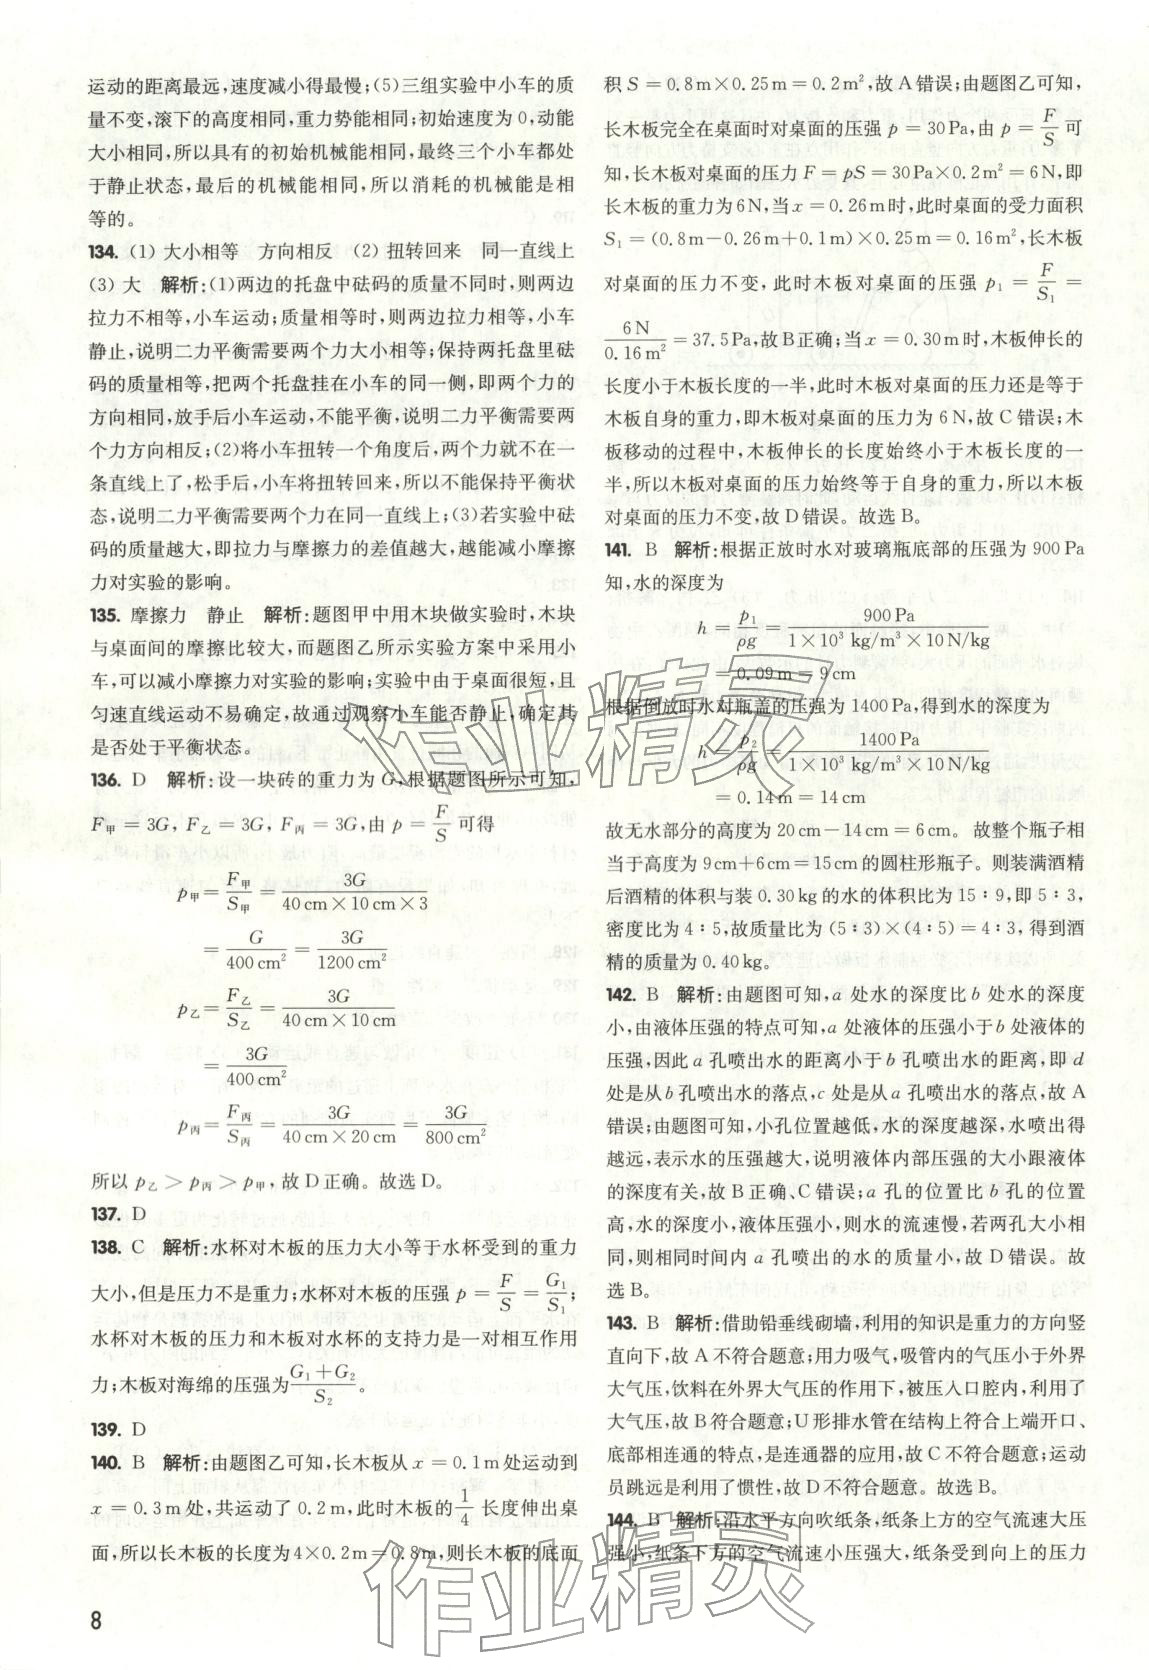 运动的距离最远,速度减小得最慢;(5)三组实验中小车的质
量不变,滚下的高度相同,重力势能相同;初始速度为0,动能
大小相同,所以具有的初始机械能相同,最终三个小车都处
于静止状态,最后的机械能相同,所以消耗的机械能是相
等的。
134. (1) 大小相等 方向相反 (2) 扭转回来 同一直线上
(3) 大 解析:(1)两边的托盘中砝码的质量不同时,则两边
拉力不相等,小车运动;质量相等时,则两边拉力相等,小车
静止,说明二力平衡需要两个力大小相等;保持两托盘里砝
码的质量相等,把两个托盘挂在小车的同一侧,即两个力的
方向相同,放手后小车运动,不能平衡,说明二力平衡需要两
个力方向相反;(2)将小车扭转一个角度后,两个力就不在一
条直线上了,松手后,小车将扭转回来,所以不能保持平衡状
态,说明二力平衡需要两个力在同一直线上;(3)若实验中砝
码的质量越大,即拉力与摩擦力的差值越大,越能减小摩擦
力对实验的影响。
135. 摩擦力 静止 解析:题图甲中用木块做实验时,木块
与桌面间的摩擦比较大,而题图乙所示实验方案中采用小
车,可以减小摩擦力对实验的影响;实验中由于桌面很短,且
匀速直线运动不易确定,故通过观察小车能否静止,确定其
是否处于平衡状态。
136. D 解析:设一块砖的重力为 G,根据题图所示可知,
F甲 = 3G, F乙 = 3G, F丙 = 3G,由 p = F/S 可得
p甲 = F甲/S甲 = 3G/(40 cm×10 cm×3)
= G/(400 cm²) = 3G/(1200 cm²)
p乙 = F乙/S乙 = 3G/(40 cm×10 cm)
= 3G/(400 cm²)
p丙 = F丙/S丙 = 3G/(40 cm×20 cm) = 3G/(800 cm²)
所以 p乙 > p丙 > p甲,故 D 正确。故选 D。
137. D
138. C 解析:水杯对木板的压力大小等于水杯受到的重力
大小,但是压力不是重力;水杯对木板的压强 p = F/S = G₁/S₁;
水杯对木板的压力和木板对水杯的支持力是一对相互作用
力;木板对海绵的压强为(G₁+G₂)/S₂。
139. D
140. B 解析:由题图乙可知,长木板从 x = 0.1 m处运动到
x = 0.3 m 处,共运动了 0.2 m,此时木板的 1/4 长度伸出桌
面,所以长木板的长度为 4×0.2 m = 0.8 m,则长木板的底面
8
积 S = 0.8 m×0.25 m = 0.2 m²,故 A 错误;由题图乙可知,
长木板完全在桌面时对桌面的压强 p = 30 Pa,由 p = F/S 可
知,长木板对桌面的压力 F = pS = 30 Pa×0.2 m² = 6 N,即
长木板的重力为 6 N,当 x = 0.26 m 时,此时桌面的受力面积
S₁ = (0.8 m−0.26 m+0.1 m)×0.25 m = 0.16 m²,长木板
对桌面的压力不变,此时木板对桌面的压强 p₁ = F/S₁ =
6 N/(0.16 m²) = 37.5 Pa,故 B 正确;当 x = 0.30 m 时,木板伸长的
长度小于木板长度的一半,此时木板对桌面的压力还是等于
木板自身的重力,即木板对桌面的压力为 6 N,故 C 错误;木
板移动的过程中,木板伸长的长度始终小于木板长度的一
半,所以木板对桌面的压力始终等于自身的重力,所以木板
对桌面的压力不变,故 D 错误。故选 B。
141. B 解析:根据正放时水对玻璃瓶底部的压强为 900 Pa
知,水的深度为
h = p₁/ρg = 900 Pa/(1×10³ kg/m³×10 N/kg)
= 0.09 m = 9 cm
根据倒放时水对瓶盖的压强为 1400 Pa,得到水的深度为
h = p₂/ρg = 1400 Pa/(1×10³ kg/m³×10 N/kg)
= 0.14 m = 14 cm
故无水部分的高度为 20 cm−14 cm = 6 cm。故整个瓶子相
当于高度为 9 cm+6 cm = 15 cm 的圆柱形瓶子。则装满酒精
后酒精的体积与装 0.30 kg 的水的体积比为 15∶9,即 5∶3,
密度比为 4∶5,故质量比为 (5∶3)×(4∶5) = 4∶3,得到酒
精的质量为 0.40 kg。
142. B 解析:由题图可知,a 处水的深度比 b 处水的深度
小,由液体压强的特点可知,a 处液体的压强小于 b 处液体的
压强,因此 a 孔喷出水的距离小于 b 孔喷出水的距离,即 d
处是从 b 孔喷出水的落点,c 处是从 a 孔喷出水的落点,故 A
错误;由题图可知,小孔位置越低,水的深度越深,水喷出得
越远,表示水的压强越大,说明液体内部压强的大小跟液体
的深度有关,故 B 正确、C 错误;a 孔的位置比 b 孔的位置
高,水的深度小,液体压强小,则水的流速慢,若两孔大小相
同,则相同时间内 a 孔喷出的水的质量小,故 D 错误。故
选 B。
143. B 解析:借助铅垂线砌墙,利用的知识是重力的方向竖
直向下,故 A 不符合题意;用力吸气,吸管内的气压小于外界
大气压,饮料在外界大气压的作用下,被压入口腔内,利用了
大气压,故 B 符合题意;U 形排水管在结构上符合上端开口、
底部相连通的特点,是连通器的应用,故 C 不符合题意;运动
员跳远是利用了惯性,故 D 不符合题意。故选 B。
144. B 解析:沿水平方向吹纸条,纸条上方的空气流速大压
强小,纸条下方的空气流速小压强大,纸条受到向上的压力
作业精灵
作业精灵